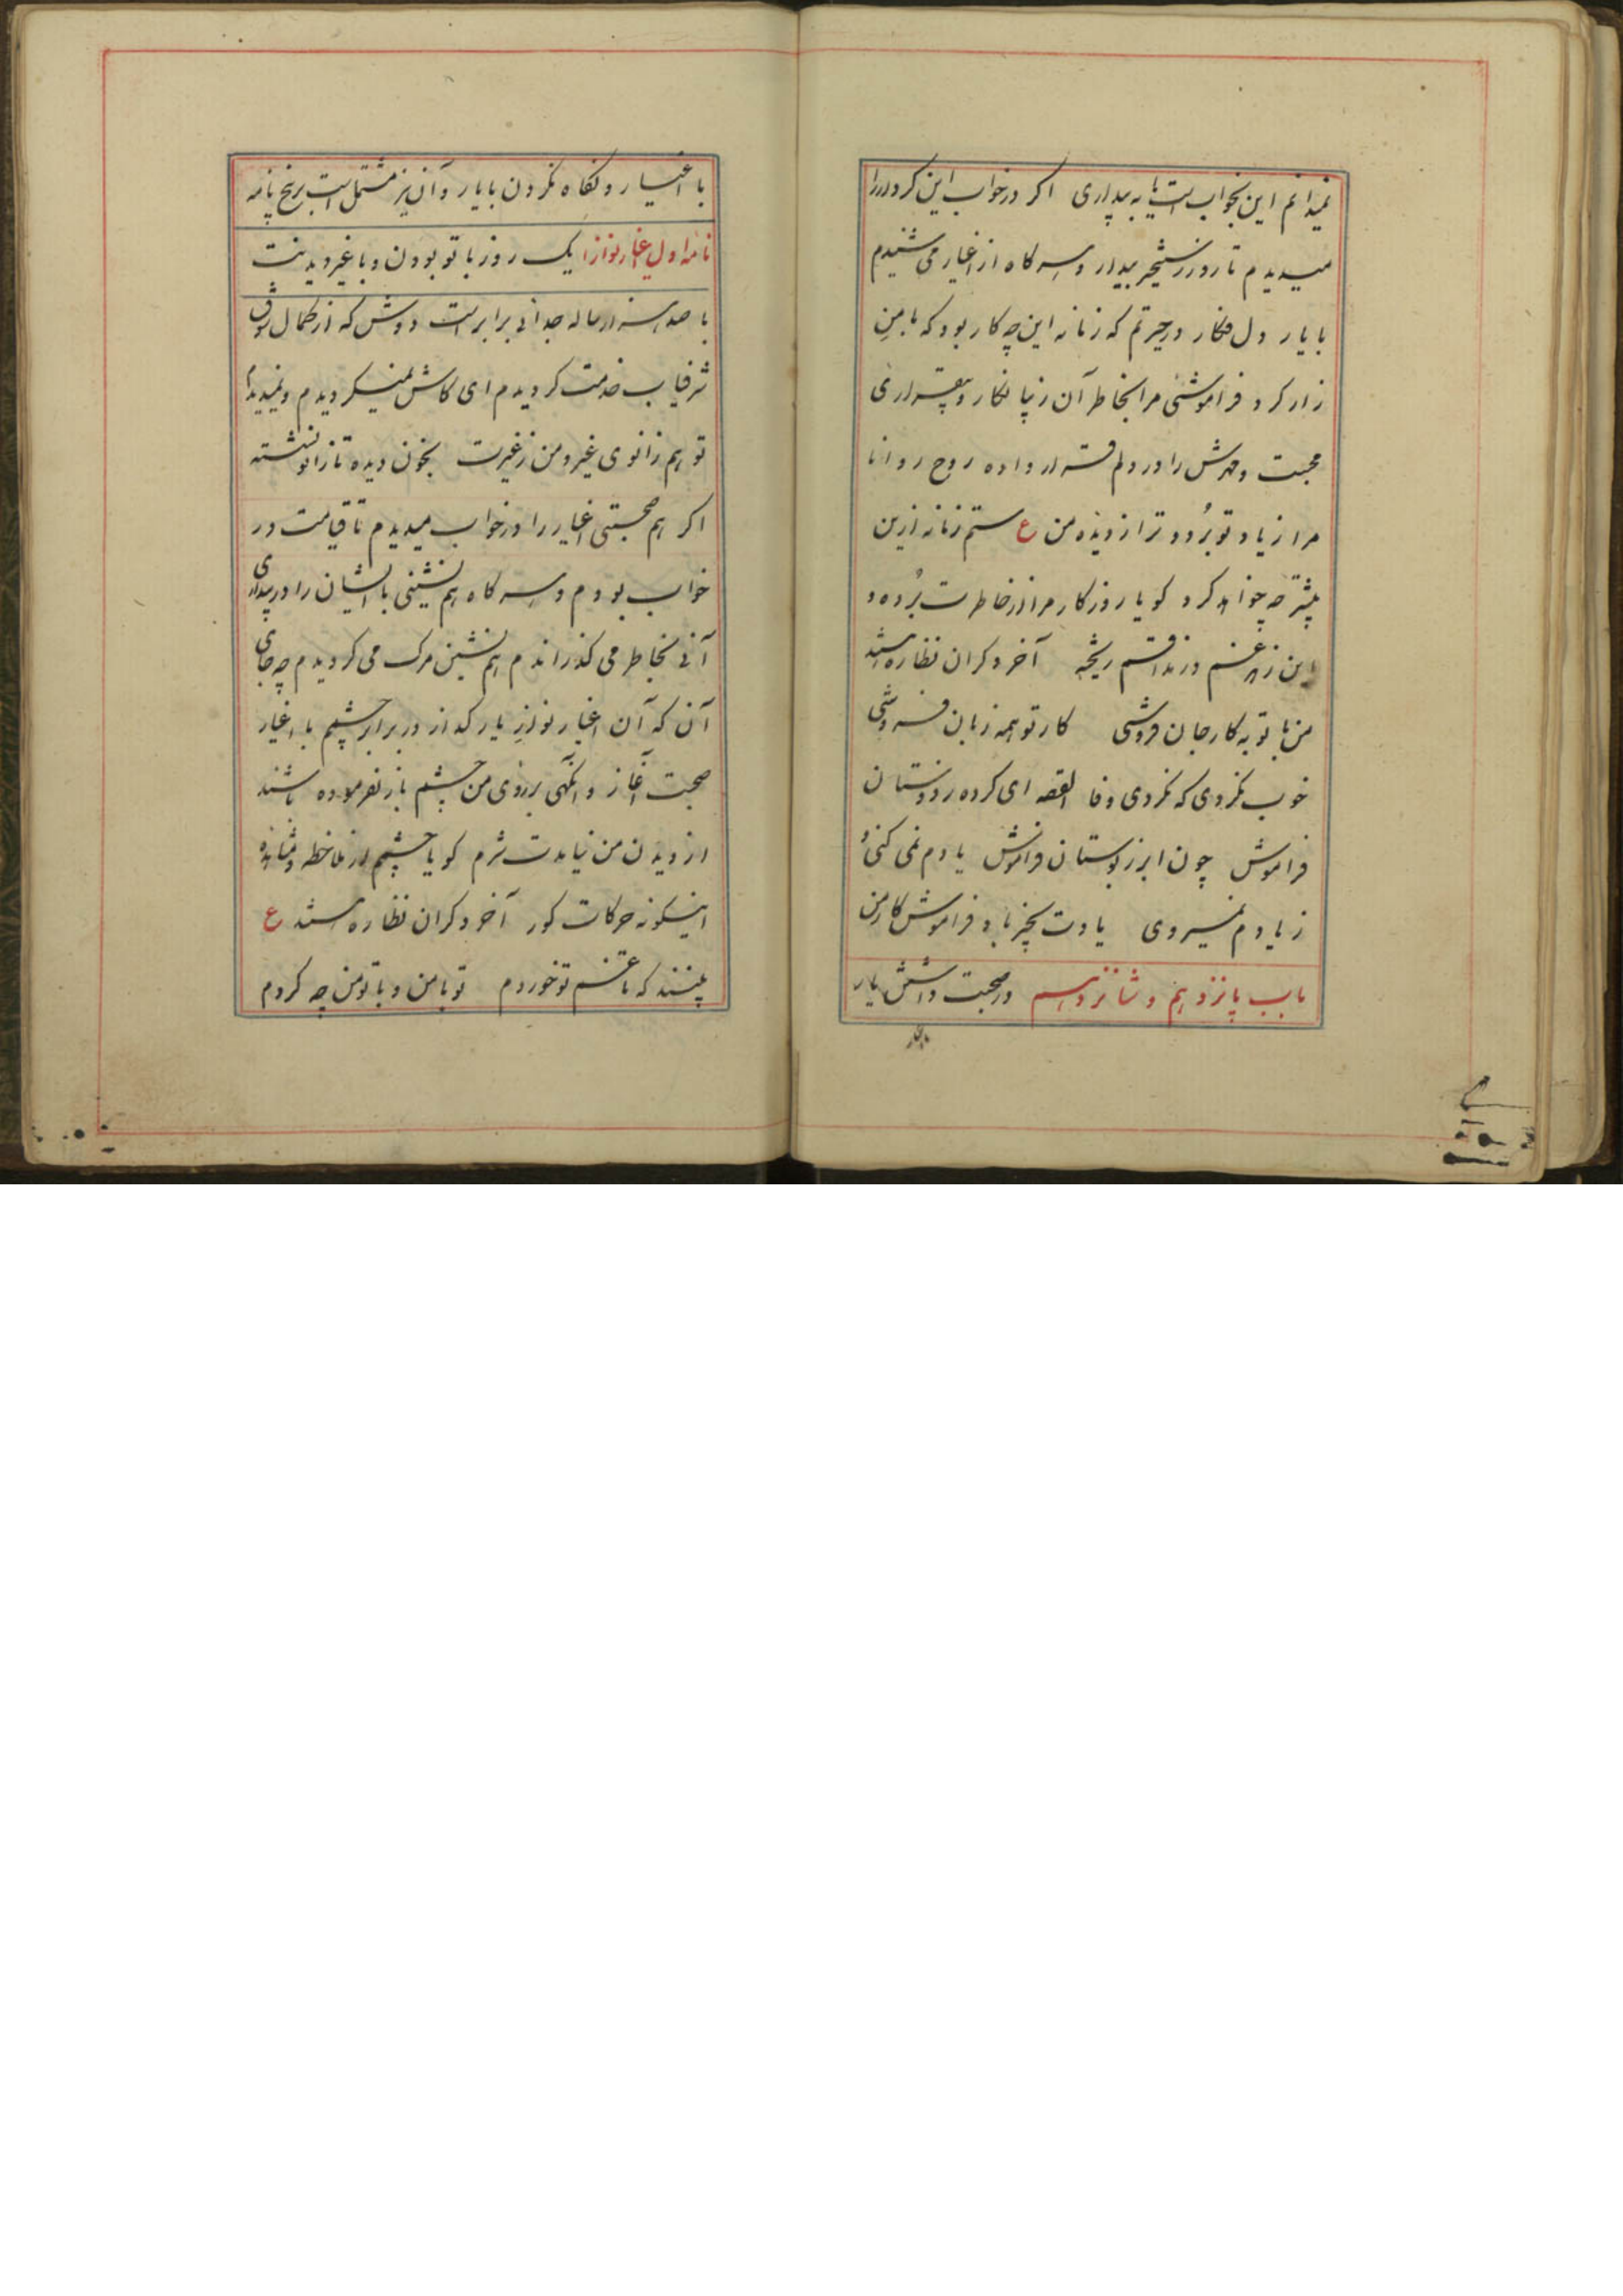 نمیدانم این بخواب است یا به بیداری اکر در خواب این کردار را
میدیدم تا روز رستخیز بیدار و هر کاه از اغیار می شنیدم
با یار دل فکار در حیرتم که زمانه این چه کار بود که با من
زار کرد فراموشئی مرا بخاطر آن زیبا نکار و بیقراری
محبت و مهرش را در دلم قرار داده روح روانا
مرا زیاد تو بُرد و ترا از دیده من ع ستم زمانه ازین
بیشتر چه خواهد کرد کویا روزکار مرا از خاطرت بُرده و
این زهر غم در مذاقم ریخته آخر دکران نظاره هستند
من با تو به کار جان فروشی کار تو همه زبان فروشی
خوب نکردی که نکردی وفا القصه ای کرده ز دوستان
فراموش چون ابر ز بوستان فراموش یادم نمی کنی و
ز یادم نمیروی یادت بخیر باد فراموش کار من
باب پانزدهم و شانزدهم در صحبت داشتن یار
با اغیار
با اغیار و نکاه نکردن با یار و آن نیز مشتمل است بر پنج نامه
نامه اول اغیار نوازا یک روز با تو بودن و با غیر دیدنت
با صد هزار ساله جدائی برابر است دوش که از کمال شوق
شرفیاب خدمت کردیدم ای کاش نمیکردیدم و نمیدیدم
تو هم زانوی غیر و من ز غیرت بخون دیده تا زانو نشسته
اکر هم صحبتی اغیار را در خواب میدیدم تا قیامت در
خواب بودم و هر کاه هم نشینی با ایشان را در بیداری
آنی بخاطر می کذراندم هم نشین مرک می کردیدم چه جای
آن که آن اغیار نواز یار کداز در برابر چشم با اغیار
صحبت آغاز و انکهی بر روی من چشم باز نفرموده باشند
از دیدن من نیامدت شرم کویا چشم از ملاحظه و مشاهده
اینکونه حرکات کور آخر دکران نظاره هستند ع
بینند که تا غم تو خوردم تو با من و با تو من چه کردم